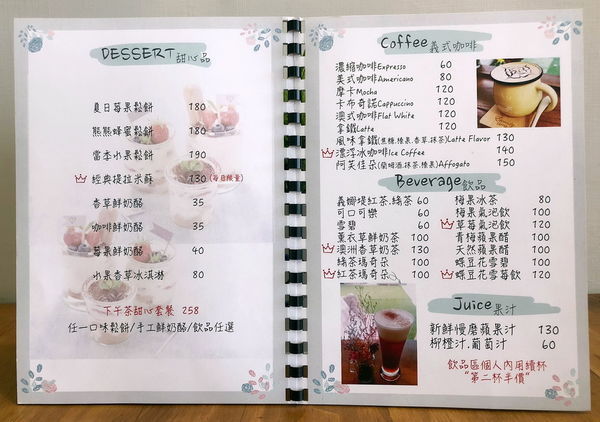 DESSERT 甜心品
夏日莓果鬆餅 180
熊熊蜂蜜鬆餅 180
當季水果鬆餅 190
經典提拉米蘇 130 (每日限量)
香草鮮奶酪 35
咖啡鮮奶酪 35
莓果鮮奶酪 40
水果香草冰淇淋 80
下午茶甜心套餐 258
任一口味鬆餅/手工鮮奶酪/飲品任選
Coffee 義式咖啡
濃縮咖啡Espresso 60
美式咖啡Americano 80
摩卡Mocha 120
卡布奇諾Cappuccino 120
澳式咖啡Flat White 120
拿鐵Latte 120
風味拿鐵(焦糖.榛果.香草.抹茶)Latte Flavor 130
漂浮冰咖啡Ice Coffee 140
阿芙佳朵(蘭姆酒.抹茶.榛果)Affogato 150
Beverage飲品
義姆堤紅茶.綠茶 60
可口可樂 60
雪碧 60
薰衣草鮮奶茶 100
澳洲香草奶茶 130
綠茶瑪奇朵 100
紅茶瑪奇朵 100
梅果冰茶 80
梅果氣泡飲 100
草莓氣泡飲 120
青梅蘋果醋 100
天然蘋果醋 100
蝶豆花雪碧 100
蝶豆花雪莓飲 120
Juice果汁
新鮮慢磨蘋果汁 130
柳橙汁.葡萄汁 60
飲品區個人內用續杯
"第二杯半價"